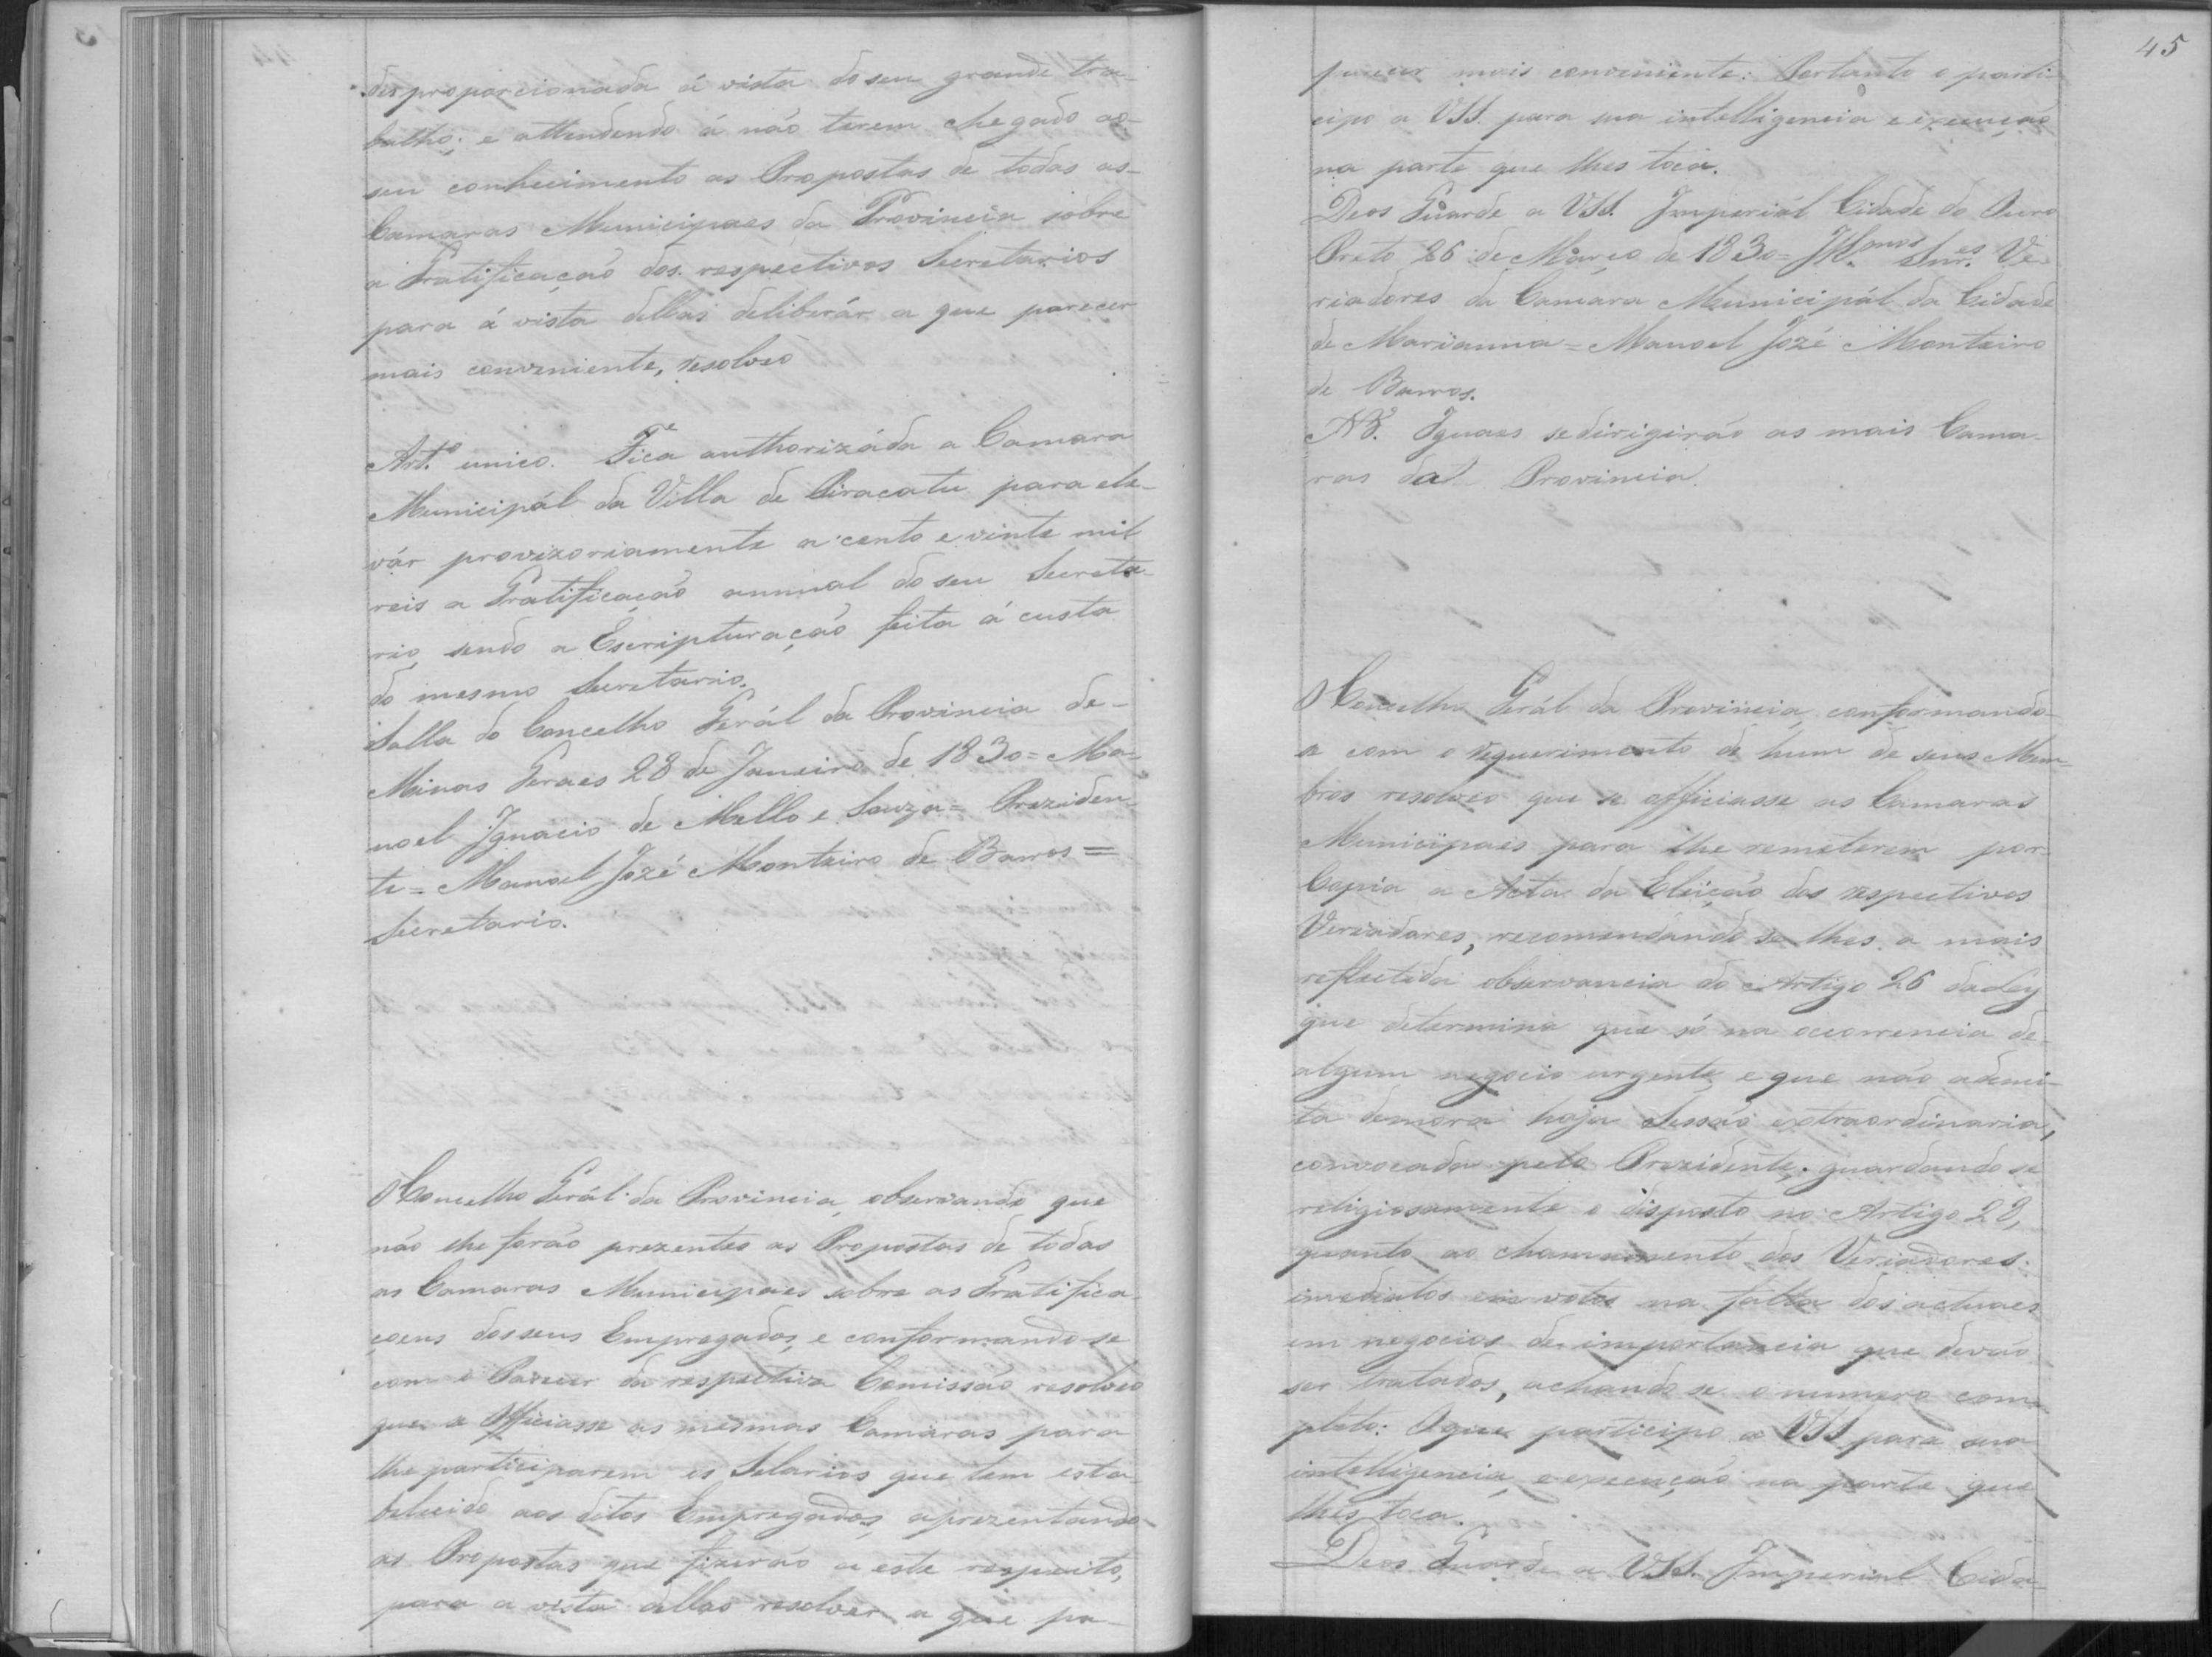 desproporcionada á vista do seu grande tra-
balho; e attendendo á não terem chegado ao-
seu conhecimento as Propostas de todas as-
Camaras Municipaes da Provincia sobre
a Gratificação dos respectivos Secretarios
para á vista dellas deliberár a que parecer
mais conveniente, resolveo
Art.º unico. Fica authorizáda a Camara
Municipál da Villa de Piracatu para ele-
vár provizoriamente a cento e vinte mil
reis a Gratificação annual do seu Secreta-
rio, sendo a Escripturação feita á custa
do mesmo Secretario.
Salla do Concelho Gerál da Provincia de-
Minas Geraes 28 de Janeiro de 1830 = Ma-
noel Ignacio de Mello e Souza = Preziden-
te = Manoel Jozé Monteiro de Barros =
Secretario.
O Concelho Gerál da Provincia, observando que
não lhe forão prezentes as Propostas de todas
as Camaras Municipaes sobre as Gratifica
çoens dos seus Empregados, e conformando-se
com o Parecer da respectiva Comissão resolveo
que se Officiasse as mesmas Camaras para
lhe participarem os Selarios que tem esta-
belecido aos ditos Empregados, aprezentando
as Propostas que fizerão a este respeito,
para a vista dellas resolver a que pa-
45
parecer mais conveniente: Portanto o parti-
cipo a VSS. para sua intelligencia e execução
na parte que lhes toca.
Deos Guarde a VSS. Imperiál Cidade do Ouro
Preto 26 de Março de 1830 = Ill.mos Snr.es Ve-
riadores da Camara Municipál da Cidade
de Marianna = Manoel Jozé Monteiro
de Barros.
NB. Iguaes se dirigirão as mais Cama-
ras da Provincia.
O Concelho Gerál da Provincia, conformando-
se com o requerimento de hum de seus Mem-
bros resolveo que se officiasse as Camaras
Municipaes para lhe remeterem por
Copia a Acta da Eleição dos respectivos
Veriadores, recomendando se lhes a mais
reflectida observancia do Artigo 26 da Ley
que determina que só na occorrencia de-
algum negocio urgente e que não admi-
ta demora haja Sessão extraordinaria,
convocada pelo Prezidente, guardando se
religiosamente o disposto no Artigo 28,
quanto ao chamamento dos Veriadores
imediatos em votos na falta dos actuaes
em negocios de importancia que devão
ser tratados, achando se o numero com-
pleto: O que participo a VSS para sua
intelligencia, e execução na parte que
lhes toca.
Deos Guarde a VSS. Imperial Cida-